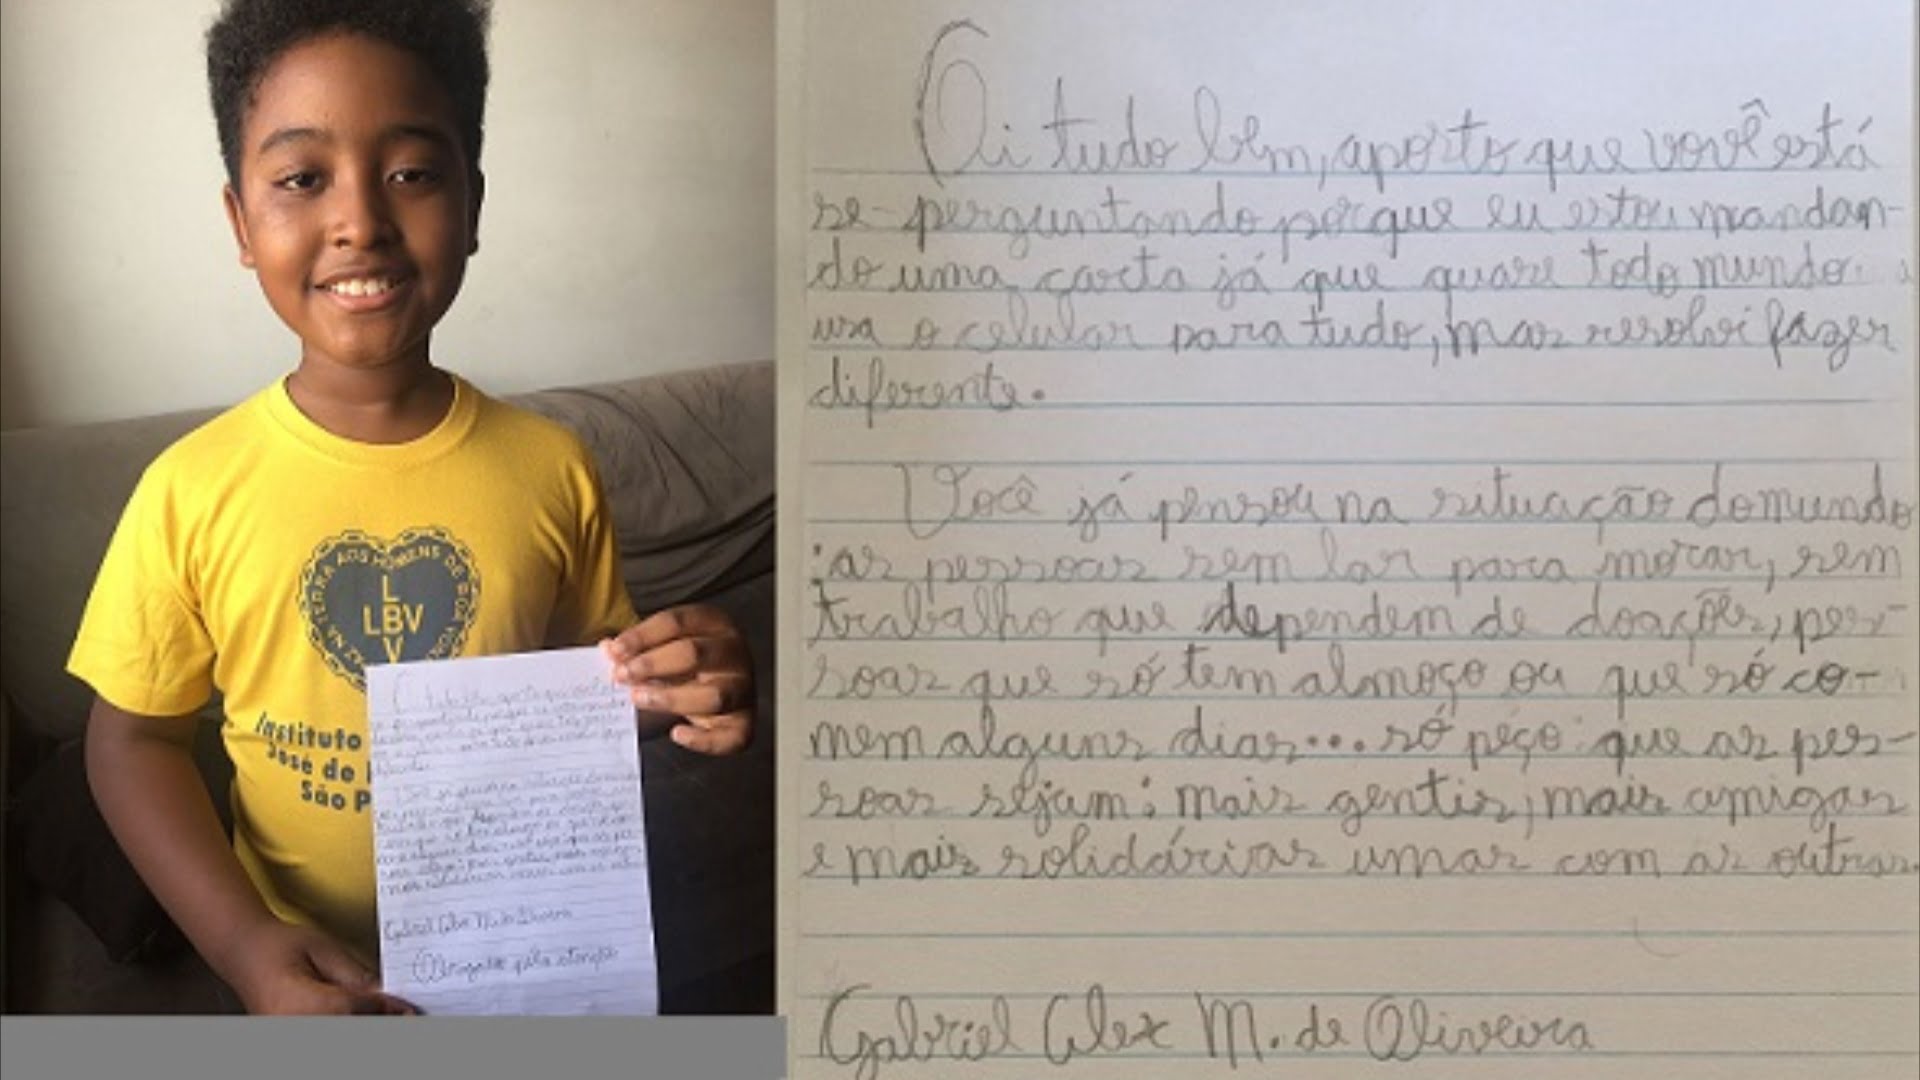 NA TERRA AOS HOMENS DE BOA
L
LBV
V
Instituto
José de
São P
Gabriel Alex M. de Oliveira
Obrigado pela atenção
Oi tudo bem, aposto que você está
se-perguntando porque eu estou mandan-
do uma carta já que quase todo mundo
usa o celular para tudo, mas resolvi fazer
diferente.
Você já pensou na situação do mundo
:as pessoas sem lar para morar, sem
trabalho que dependem de doações, pes-
soas que só tem almoço ou que só co-
mem alguns dias... só peço: que as pes-
soas sejam: mais gentis, mais amigas
e mais solidárias umas com as outras.
Gabriel Alex M. de Oliveira